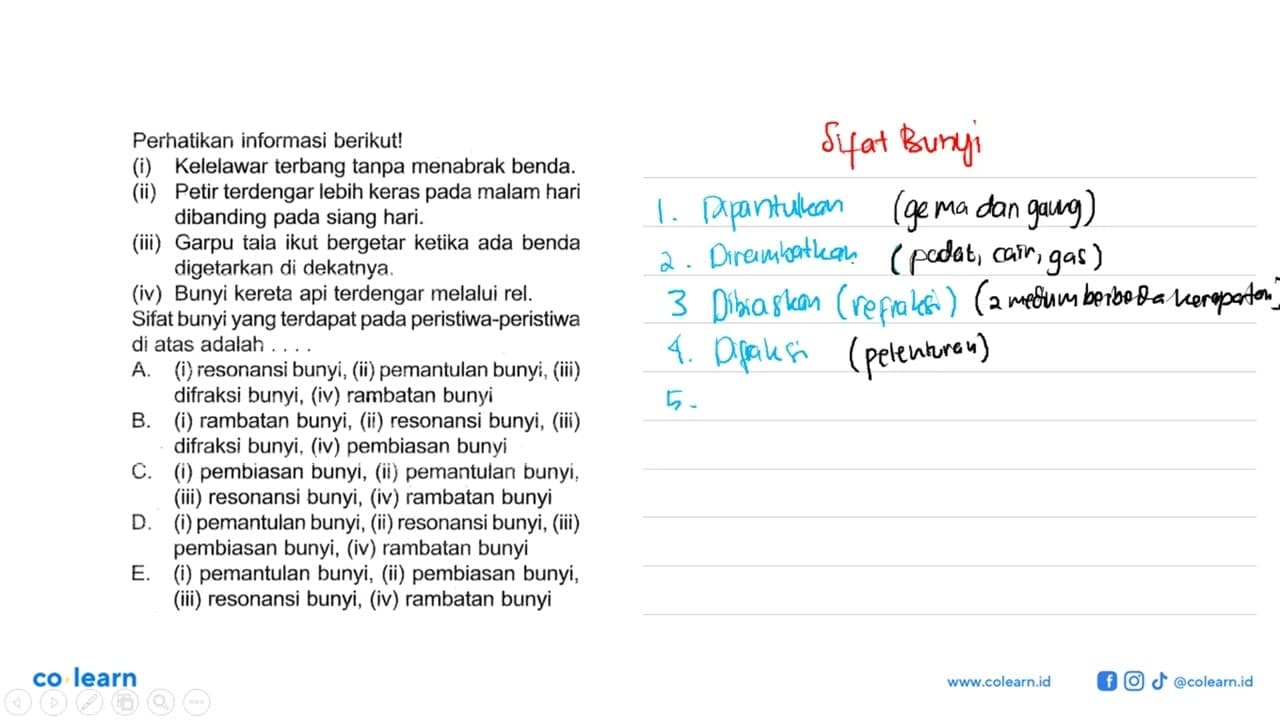 Perhatikan informasi berikut!
(i) Kelelawar terbang tanpa menabrak benda.
(ii) Petir terdengar lebih keras pada malam hari
dibanding pada siang hari.
(iii) Garpu tala ikut bergetar ketika ada benda
digetarkan di dekatnya.
(iv) Bunyi kereta api terdengar melalui rel.
Sifat bunyi yang terdapat pada peristiwa-peristiwa
di atas adalah . . . .
A. (i) resonansi bunyi, (ii) pemantulan bunyi, (iii)
difraksi bunyi, (iv) rambatan bunyi
B. (i) rambatan bunyi, (ii) resonansi bunyi, (iii)
difraksi bunyi, (iv) pembiasan bunyi
C. (i) pembiasan bunyi, (ii) pemantulan bunyi,
(iii) resonansi bunyi, (iv) rambatan bunyi
D. (i) pemantulan bunyi, (ii) resonansi bunyi, (iii)
pembiasan bunyi, (iv) rambatan bunyi
E. (i) pemantulan bunyi, (ii) pembiasan bunyi,
(iii) resonansi bunyi, (iv) rambatan bunyi
Sifat Bunyi
1. Dipantulkan (gema dan gaung)
2. Dirambatkan (padat, cair, gas)
3 Dibiaskan (refraksi) (2 medium berbeda kerapatan)
4. Difraksi (pelenturan)
5.
co learn
www.colearn.id
@colearn.id